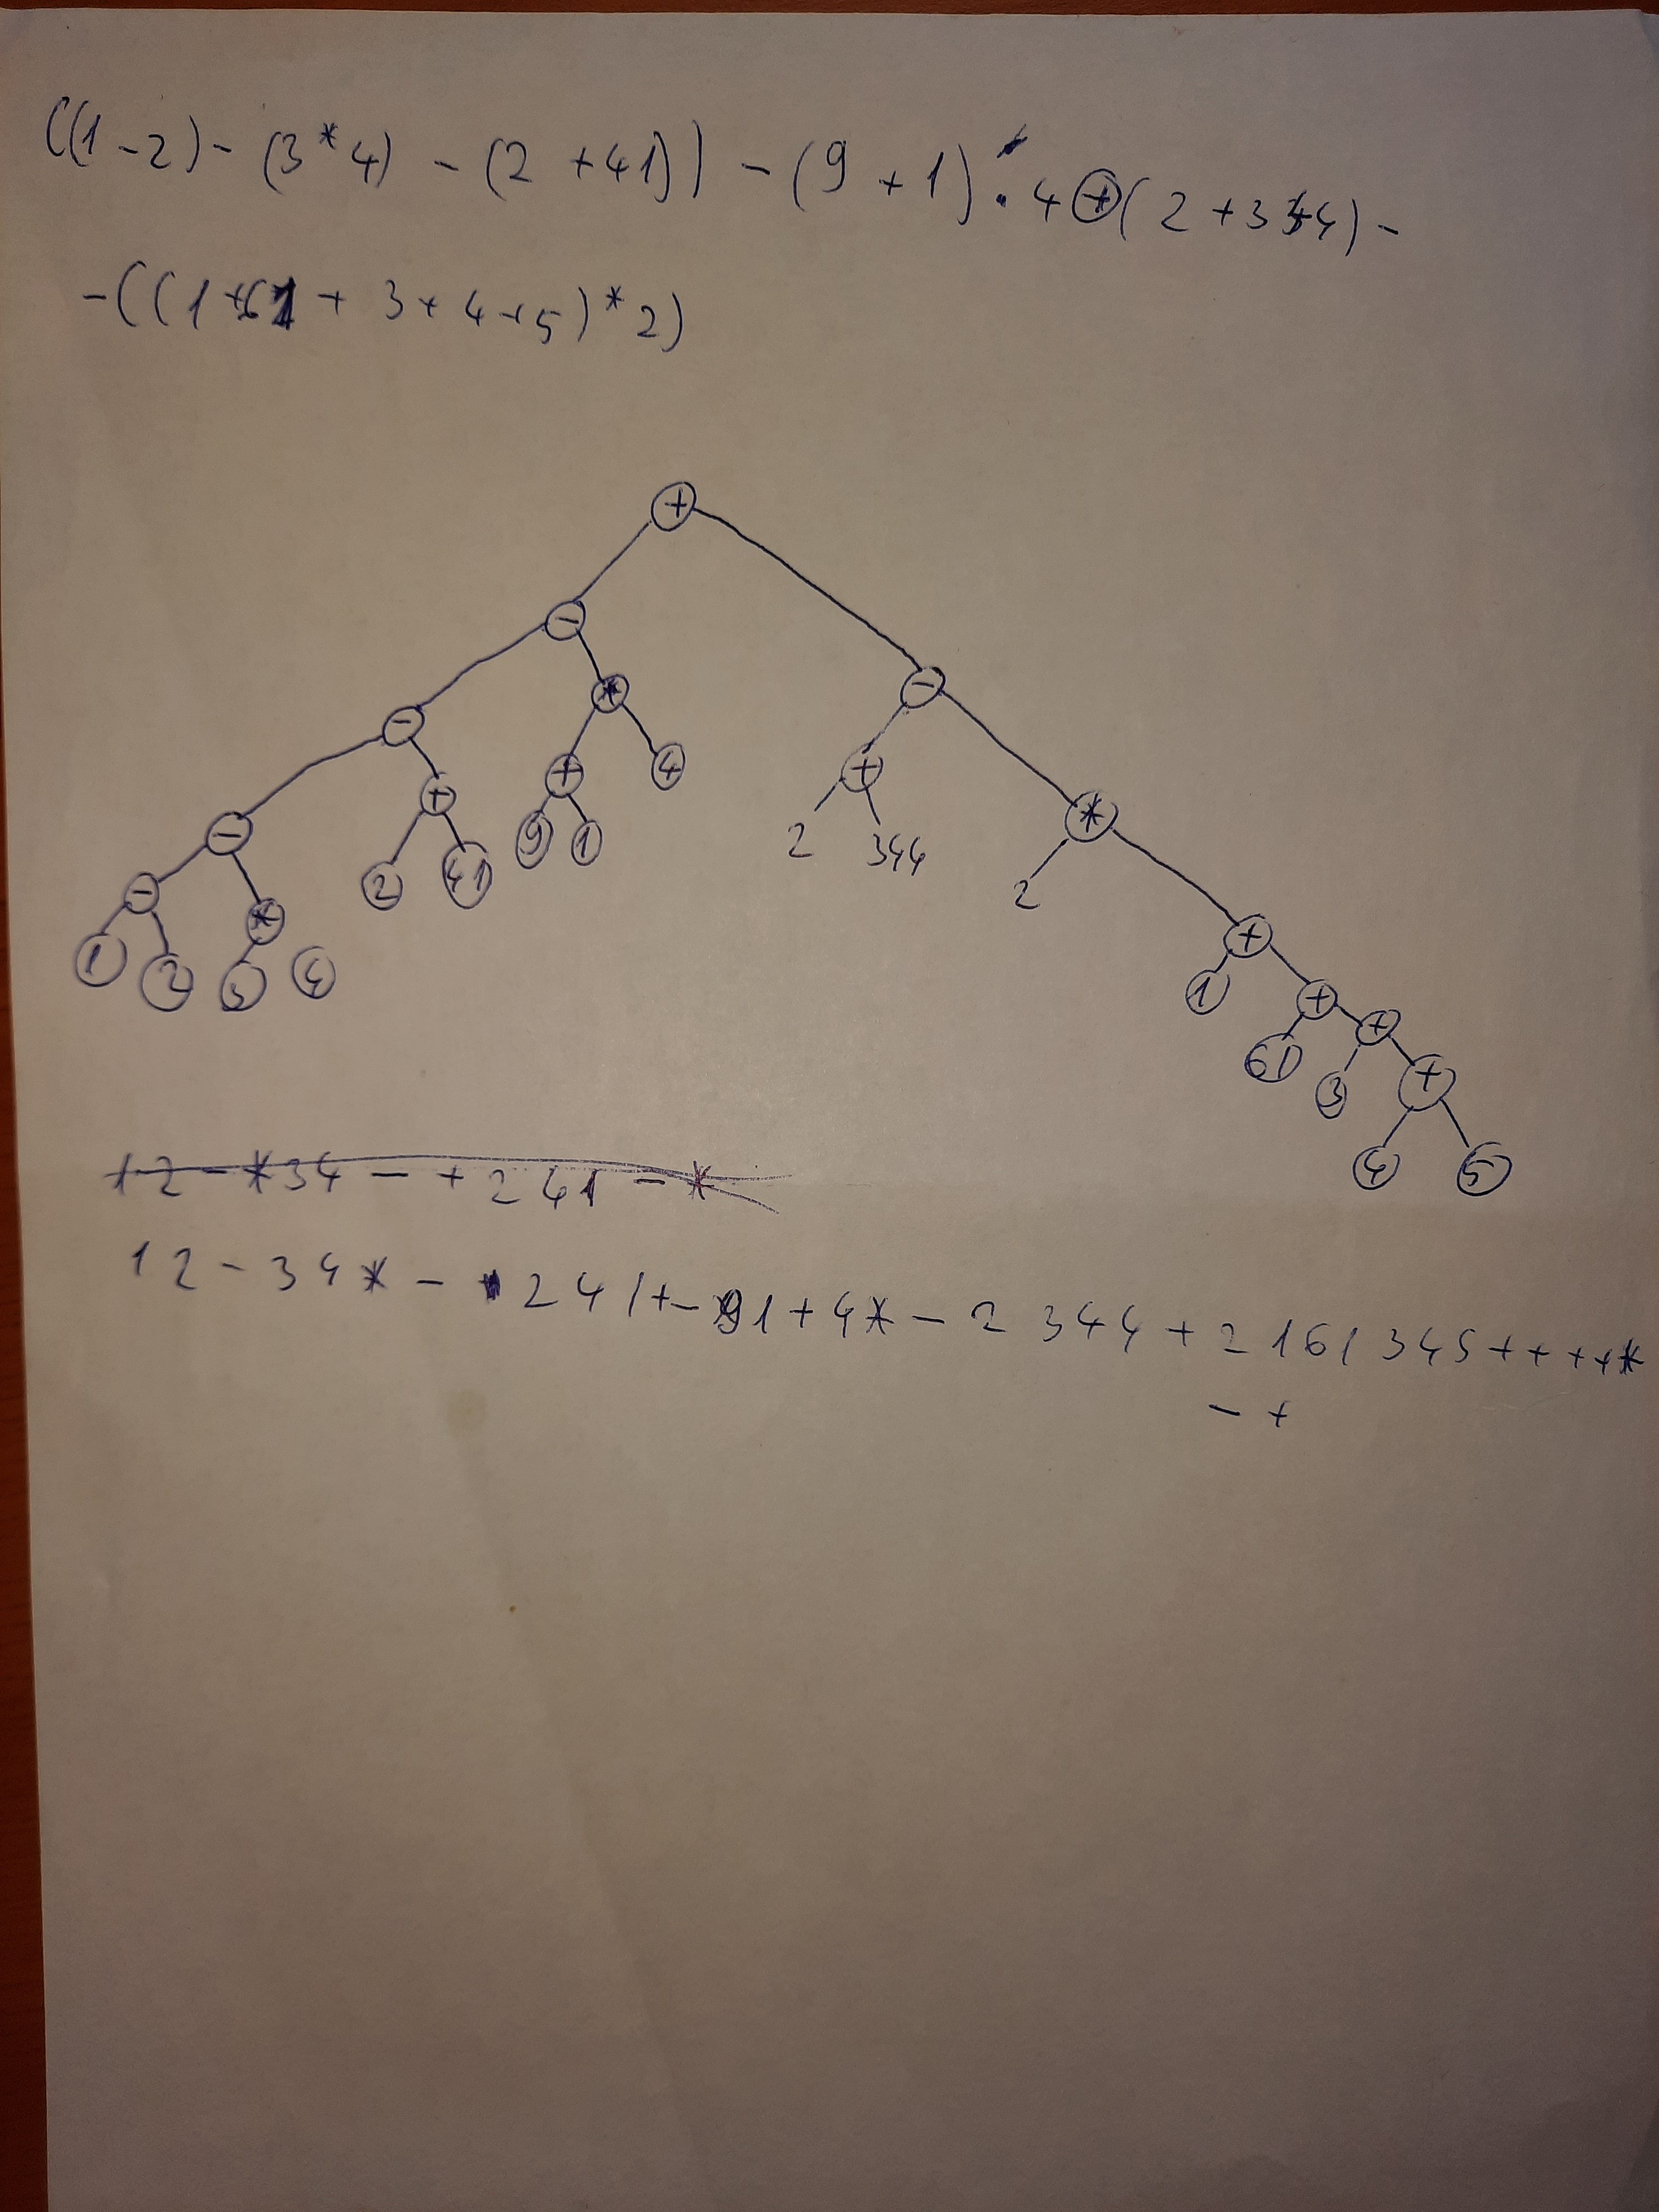 ((1-2)-(3*4)-(2+41))-(9+1)·4+(2+344)-
-((1+61+3+4+5)*2)
+
-
-
*
-
-
+
+
4
+
*
2
41
9
1
2
344
2
-
*
+
1
2
3
4
1
+
61
+
3
+
4
5
12-*34-+241-*
12-34*-241+-91+4*-2344+2161345++++*
-+